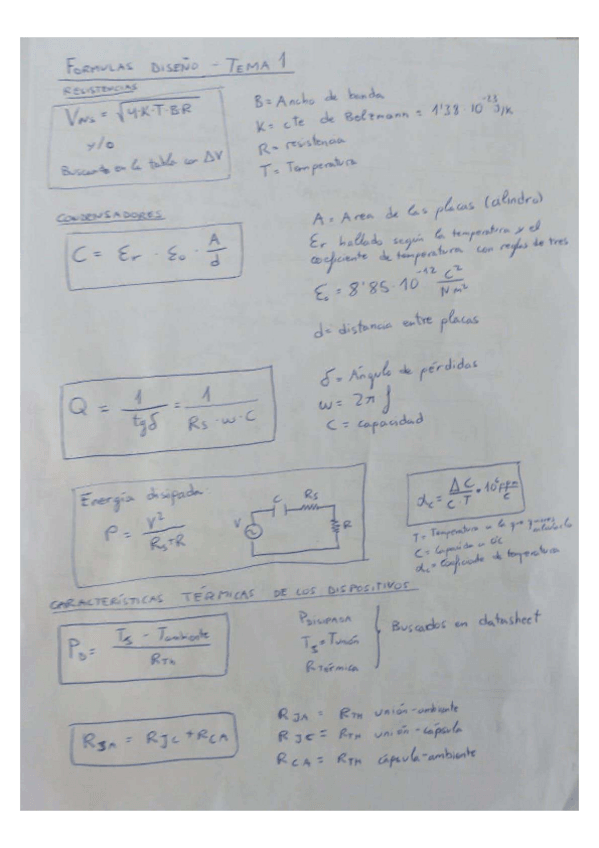 FORMULAS DISEÑO - TEMA 1
RESISTENCIAS
V = √4·K·T·B·R
y/o
Buscando en la tabla con ΔV
B = Ancho de banda
K = cte de Boltzmann = 1'38·10^-23 J/K
R = resistencia
T = Temperatura
CONDENSADORES
C = Er · Eo · A/d
A = Area de las placas (cilindro)
Er hallado según la temperatura y el
coeficiente de temperatura con reglas de tres
Eo = 8'85·10^-12 C²/N m²
d = distancia entre placas
Q = 1/tgδ = 1/(Rs·w·C)
δ = Ángulo de pérdidas
ω = 2π f
C = capacidad
Energía disipada:
P = V²/(Rs+R)
C Rs
V R
αc = ΔC/(C·T) · 10⁶ ppm/c
T = Temperatura a la que
C = Capacidad a
αc = Coeficiente de temperatura
CARACTERÍSTICAS TÉRMICAS DE LOS DISPOSITIVOS
PD = (TJ - Tambiente)/RTH
PDISIPADA
TJ = Tunión
RTérmica
Buscados en datasheet
RJA = RJC + RCA
RJA = RTH unión-ambiente
RJC = RTH unión-cápsula
RCA = RTH cápsula-ambiente